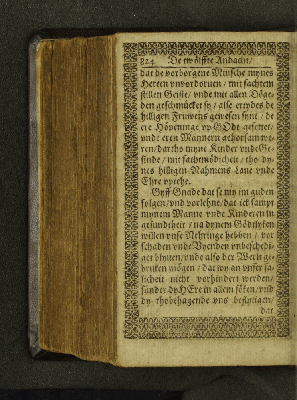 824. De twölffte Andacht/
dat de vorborgene Minsche mynes
Herten unvordorven / mit sachtem
stillen Geiste / unde mit allen Döge-
den geschmücket sy / alse erydes de
hilligen Fruwens gewesen synt / de
ere Höpeninge up GOdt gesettet/
unde eren Mannern gehorsam we-
ren/
dar tho myne Kinder unde Ge-
sinde / mit sachtmödicheit / tho dy-
nes hilligen Nahmens Lave unde
Ehre upthe.
Giff Gnade dat se my im guden
folgen/ und vorlehne/ dat ick sampt
mynem Manne unde Kinderen in
gesundtheit / na dynem Gödtlyken
willen unse Nehringe hebben / vor
schaden unde Vyenden unbeschedi-
get bliven/ unde also der Werlt ge-
bruken mögen / dat wy an unser sa-
licheit nicht vorhindert werden/
sünder dy HEre in allem söken/ und
dy thobehagende uns beflytigen/
dat